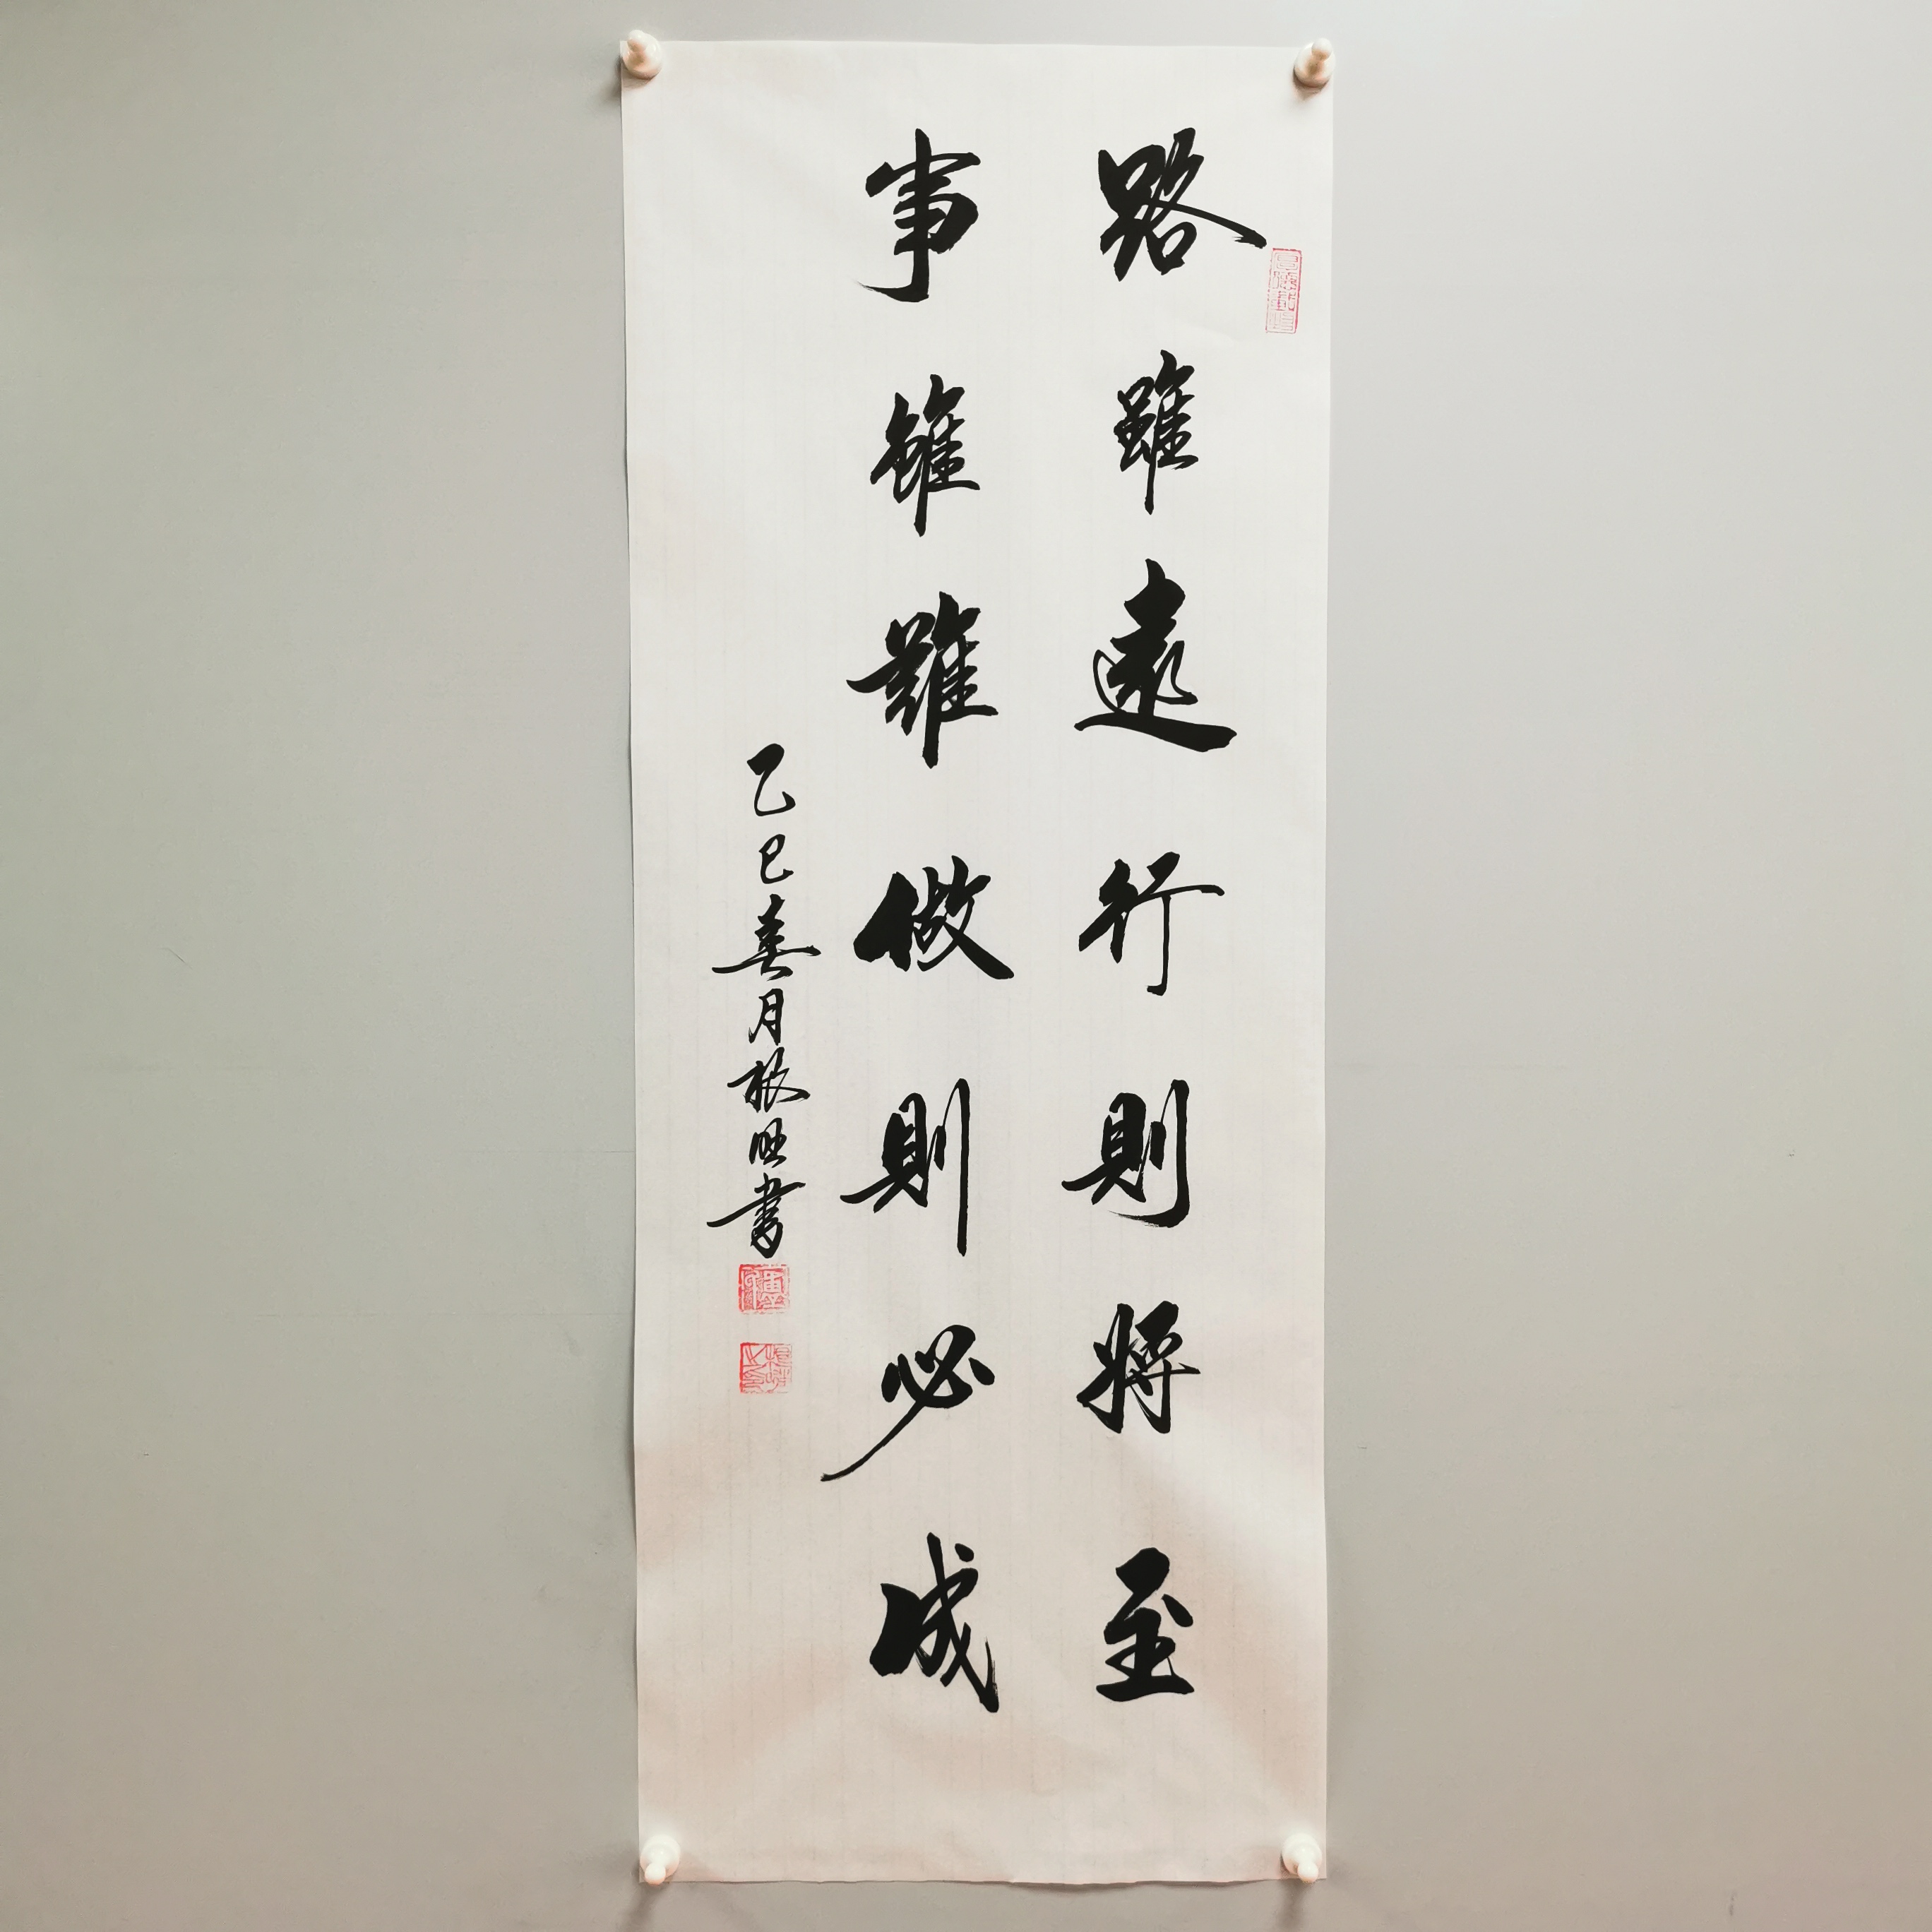 路雖遠行則將至
事雖難做則必成
乙巳春月根旺書